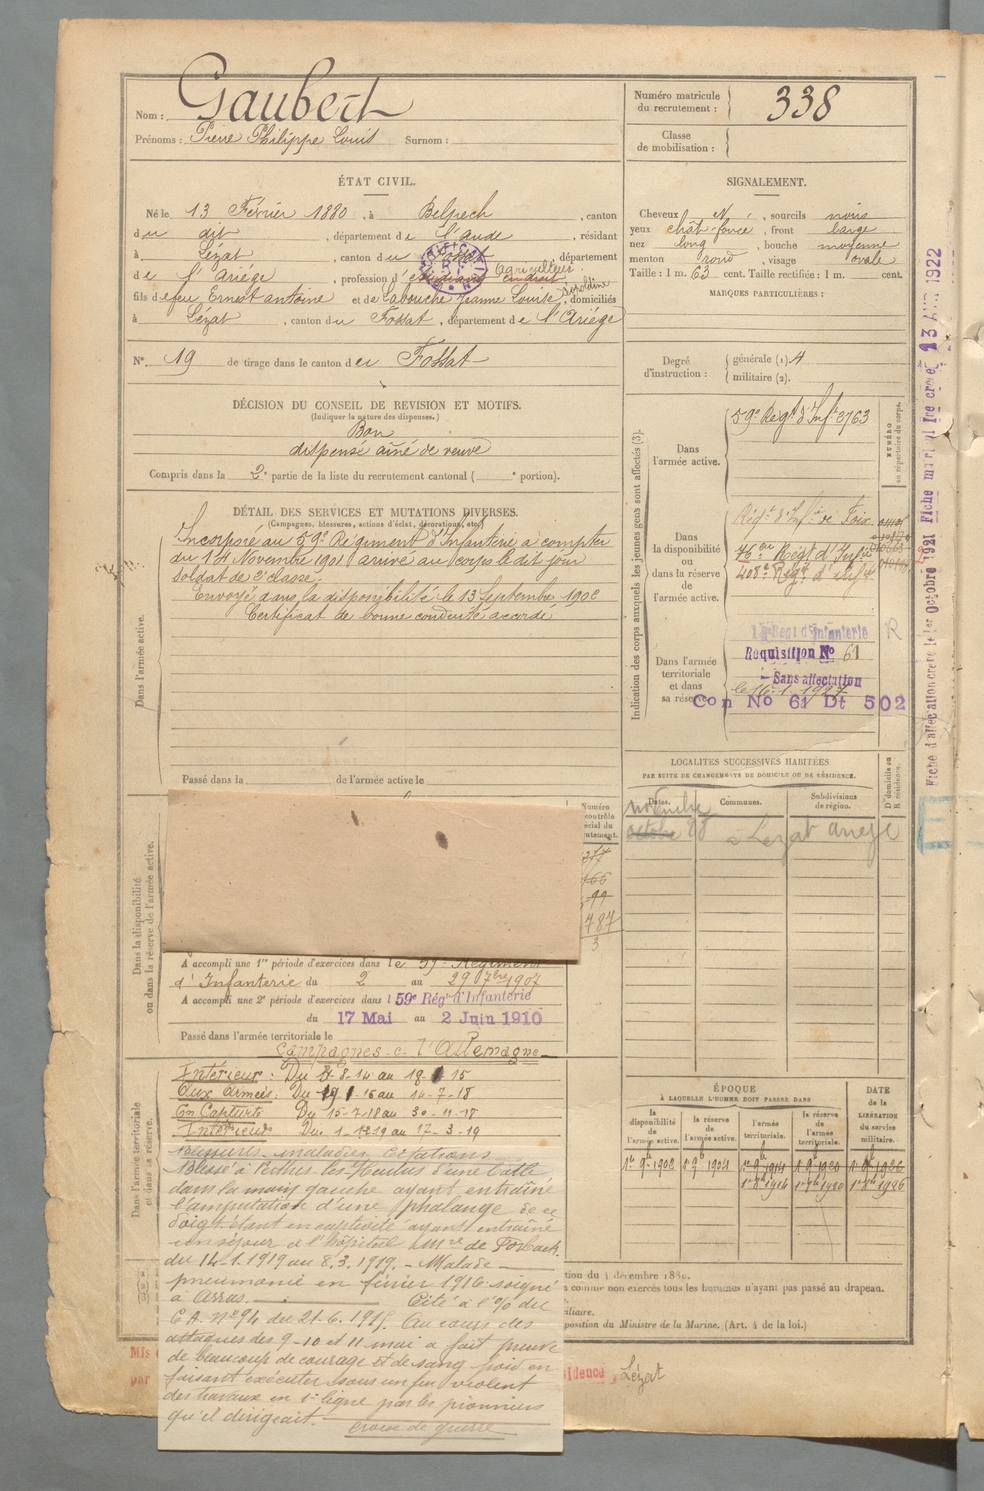 Nom : Gaubert
Prénoms : Pierre Philippe Louis Surnom :
Numéro matricule du recrutement : 338
Classe de mobilisation :
ÉTAT CIVIL.
Né le 13 Février 1880, à Belpech, canton
du dit, département de l'Aude, résidant
à Lézat, canton du Fossat, département
de l'Ariège, profession d'étudiant en droit Agriculteur
fils de feu Ernest Antoine et de Labouche Jeanne Louise Léopoldine, domiciliés
à Lézat, canton du Fossat, département de l'Ariège
N° 19 de tirage dans le canton de Fossat
DÉCISION DU CONSEIL DE REVISION ET MOTIFS.
(Indiquer la nature des dispenses.)
Bon
dispensé aîné de veuve
Compris dans la 2e partie de la liste du recrutement cantonal ( e portion).
DÉTAIL DES SERVICES ET MUTATIONS DIVERSES.
(Campagnes, blessures, actions d'éclat, décorations, etc.)
Dans l'armée active.
Incorporé au 59e Régiment d'Infanterie à compter
du 14 Novembre 1901 arrivé au corps le dit jour
soldat de 2e classe.
Envoyé dans la disponibilité le 13 Septembre 1902
Certificat de bonne conduite accordé
Passé dans la de l'armée active le
Dans la disponibilité
ou dans la réserve de l'armée active.
A accompli une 1re période d'exercices dans le 59e Régiment
d'Infanterie du 2 au 29 7bre 1907
A accompli une 2e période d'exercices dans l 59e Rég d'Infanterie
du 17 Mai au 2 Juin 1910
Passé dans l'armée territoriale le
Dans l'armée territoriale
et dans sa réserve.
Campagnes c. l'Allemagne
Intérieur : Du 4-8-14 au 18 15
Aux Armées : Du 19 1 16 au 14-7-18
En Capture Du 15-7-18 au 30-11-18
Intérieur Du 1-12-19 au 17-3-19
Blessures - maladies Citations
Blessé à Perthes les Hurlus d'une balle
dans la main gauche ayant entraîné
l'amputation d'une phalange de ce
doigt étant en captivité ayant entraîné
un séjour à l'hôpital Mre de Forbach
du 14-1-1919 au 8.3.1919. - Malade
pneumonie en février 1916 soigné
à Arras. Cité à l'O/ du
C.A. n° 94 du 21-6-1915 Au cours des
attaques des 9-10 et 11 mai a fait preuve
de beaucoup de courage et de sang froid en
faisant exécuter sous un feu violent
des travaux en 1e ligne par les pionniers
qu'il dirigeait.
Croix de guerre
SIGNALEMENT.
Cheveux N , sourcils noirs
yeux chât foncé, front large
nez long, bouche moyenne
menton rond, visage ovale
Taille : 1 m. 63 cent. Taille rectifiée : 1 m. cent.
MARQUES PARTICULIÈRES :
Degré d'instruction : générale (1). 4
militaire (2).
Indication des corps auxquels les jeunes gens sont affectés (3).
NUMÉRO au répertoire du corps.
Dans l'armée active. 59e Régt d'Inf. 2763
Dans la disponibilité ou dans la réserve de l'armée active.
Régt d'Infie de Foix
76e Régt d'Infie
408e Régt d'inf.
Dans l'armée territoriale et dans sa réserve.
Régt d'Infanterie R
Requisition No 61
Sans affectation
le 16-1-1927
Con No 61 Dt 502
LOCALITÉS SUCCESSIVES HABITÉES
PAR SUITE DE CHANGEMENTS DE DOMICILE OU DE RÉSIDENCE.
Dates. Communes. Subdivisions de région. D domicile ou R résidence.
novembre
octobre 28 Lezat ariege
ÉPOQUE
À LAQUELLE L'HOMME DOIT PASSER DANS
la disponibilité de l'armée active. la réserve de l'armée active. l'armée territoriale. la réserve de l'armée territoriale.
DATE de la LIBÉRATION du service militaire.
1er 9b 1902 1er 9b 1904 1er 9b 1914 1er 9b 1920 1er 9b 1926
tion du 4 décembre 1889.
comme non exercés tous les hommes n'ayant pas passé au drapeau.
iliaire.
position du Ministre de la Marine. (Art. 4 de la loi.)
Mis
par
sidence, Lézat
Fiche d'affectation créée le 1er Octobre 1921 Fiche créée 13 AVR 1922